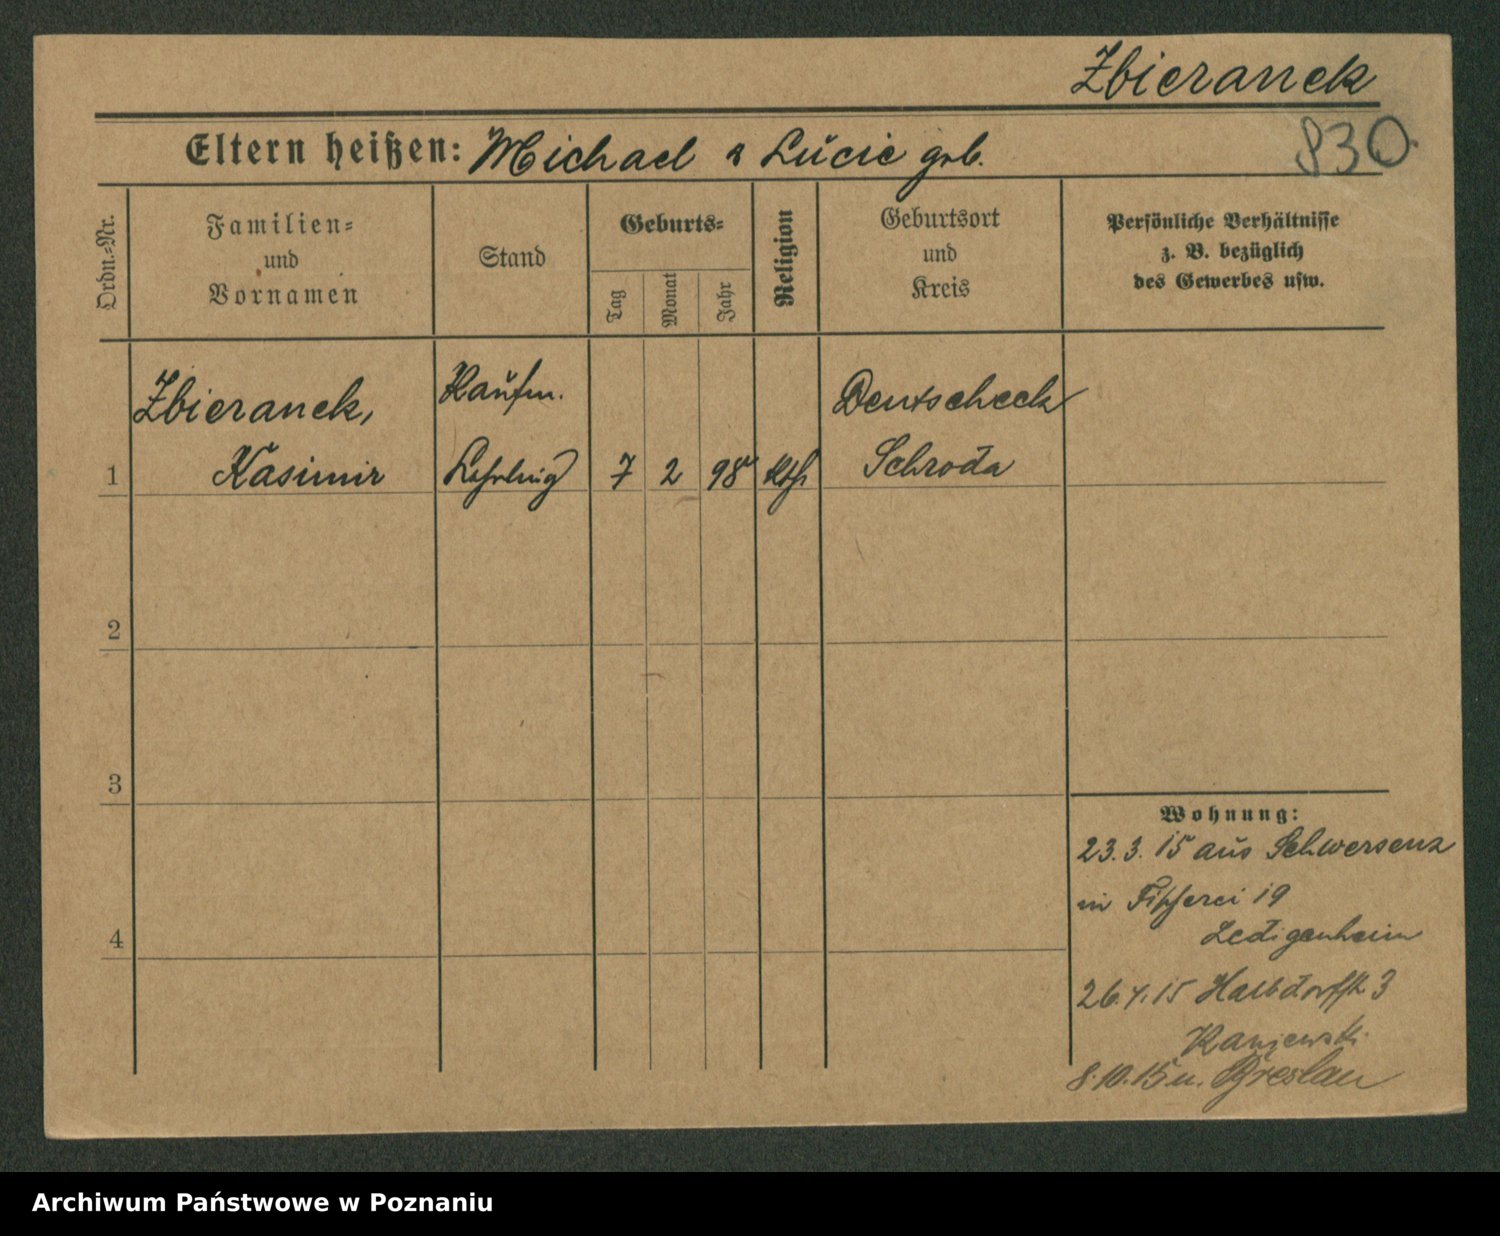 Zbieranek
830.
Eltern heißen: Michael & Lucie geb.
Ordn.-Nr.
Familien-
und
Vornamen
Stand
Geburts-
Tag
Monat
Jahr
Religion
Geburtsort
und
Kreis
Persönliche Verhältnisse
z. B. bezüglich
des Gewerbes usw.
1
Zbieranek,
Kasimir
Kaufm.
Lehrling
7
2
98
kth
Deutscheck
Schroda
2
3
4
Wohnung:
23.3.15 aus Schwersenz
in Fischerei 19
Ledigenheim
26.4.15 Halbdorfstr 3
Kaniewski
8.10.15 n. Breslau
Archiwum Państwowe w Poznaniu